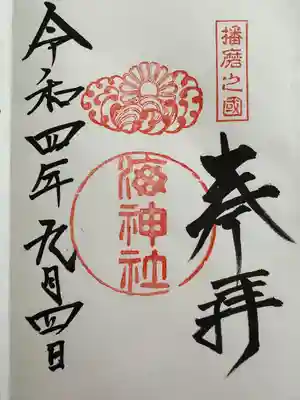 播磨之國
奉拝
海神社
令和四年元月四日